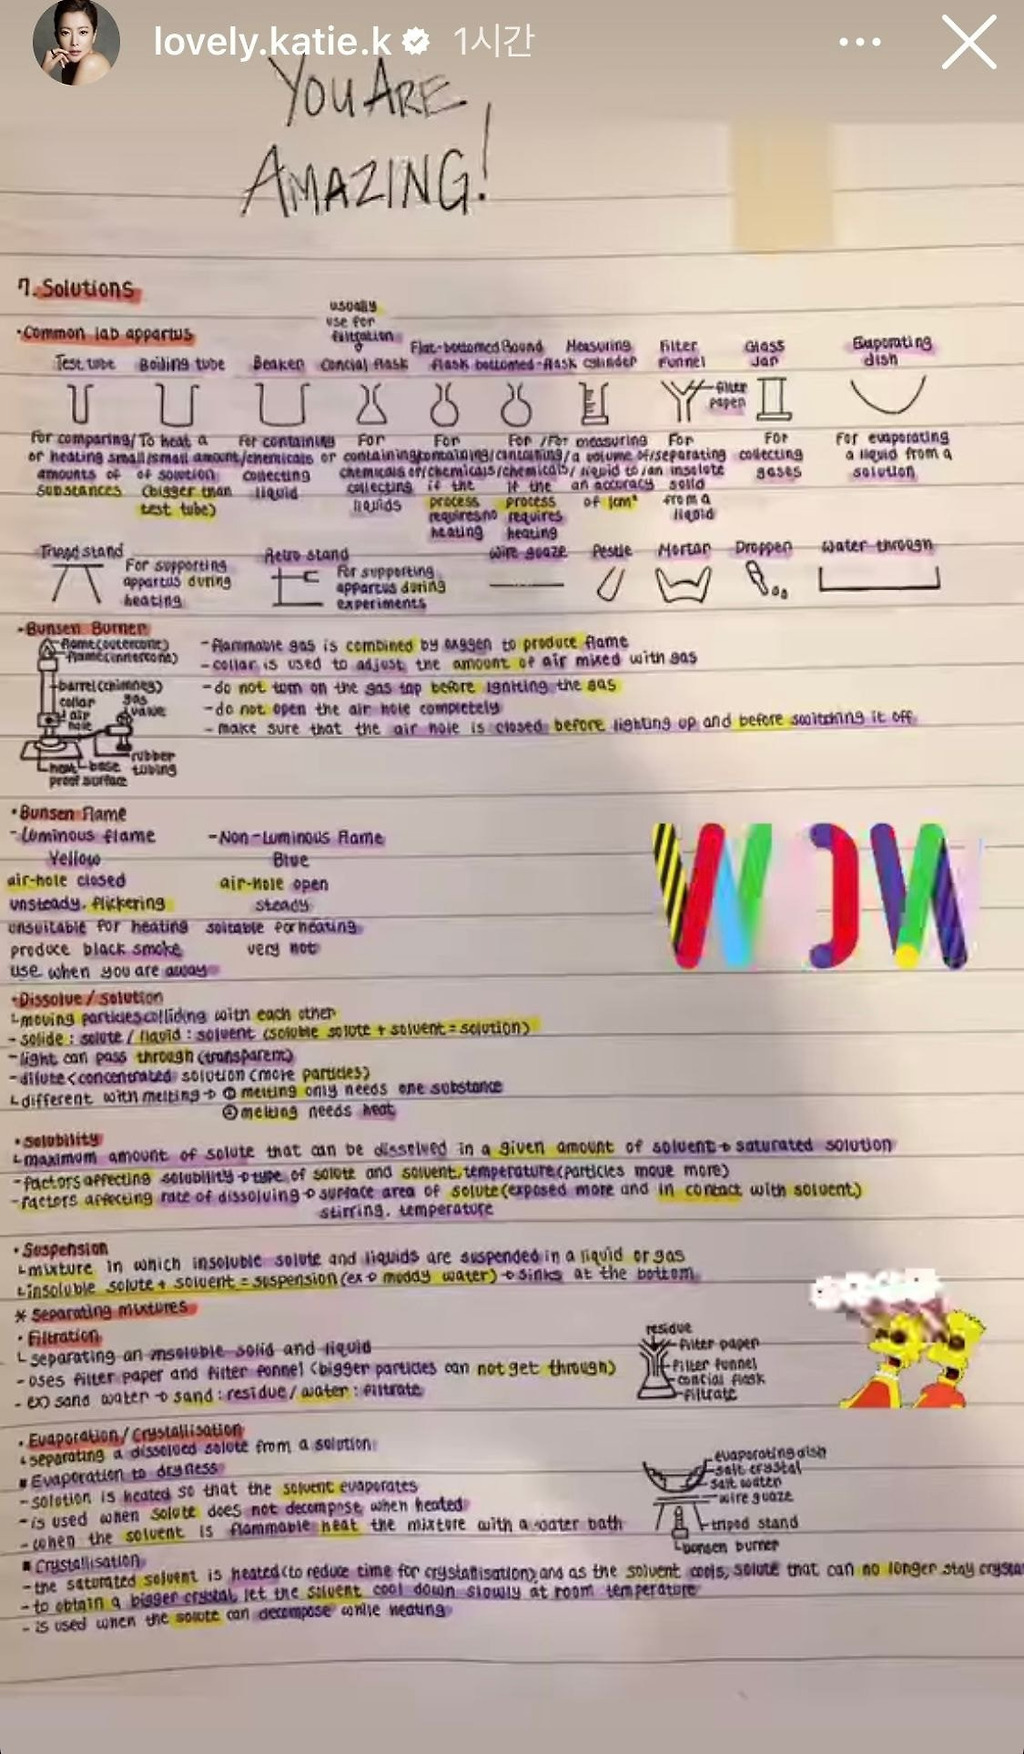 lovely.katie.k 1시간
YOU ARE
AMAZING!
7. Solutions
usually
use for
filtration
•Common lab appartus
Test tube Boiling tube Beaken Concial flask Flat-bottomed flask Round bottomed-flask Measuring cylinder Filter Funnel Glass Jar Evaporating dish
filter
papen
For comparing/ or heating small amounts of substances
To heat a small amount of solution (bigger than test tube)
For containing chemicals or collecting liquid
For containing chemicals or collecting liquids
For containing/ chemicals/ if the process requires no heating
For containing/ chemicals/ if the process requires heating
/For measuring a volume of liquid to an accuracy of 1cm³
For separating an insolute solid from a liquid
For collecting gases
For evaporating a liquid from a solution
Tripod stand Retro stand Wire guaze Pestle Mortar Droppen Water through
For supporting
appartus during
heating
For supporting
appartus during
experiments
•Bunsen Burner
flame(outercone)
flame(innercone)
barrel(chimney)
collar
gas
valve
air
hole
rubber
tubing
heat base
proof surface
-flammable gas is combined by oxygen to produce flame
-collar is used to adjust the amount of air mixed with gas
-do not turn on the gas tap before igniting the gas
-do not open the air hole completely
-make sure that the air hole is closed before lighting up and before switching it off
•Bunsen Flame
-Luminous flame -Non-Luminous flame
Yellow Blue
air-hole closed air-hole open
unsteady, flickering steady
unsuitable for heating suitable for heating
produce black smoke very hot
use when you are away
WOW
•Dissolve / solution
└moving particles colliding with each other
-solide : solute / liquid : solvent (soluble solute + solvent = solution)
-light can pass through (transparent)
-dilute < concentrated solution (more particles)
└different with melting → ① melting only needs one substance
② melting needs heat
•Solubility
└maximum amount of solute that can be dissolved in a given amount of solvent → saturated solution
-factors affecting solubility → type of solute and solvent, temperature (particles move more)
-factors affecting rate of dissolving → surface area of solute (exposed more and in contact with solvent)
stirring, temperature
•Suspension
└mixture in which insoluble solute and liquids are suspended in a liquid or gas
└insoluble solute + solvent = suspension (ex → muddy water) → sinks at the bottom
* Separating mixtures
•Filtration
└ separating an insoluble solid and liquid
- uses filter paper and filter funnel (bigger particles can not get through)
- ex) sand water → sand : residue / water : filtrate
residue
filter papen
filter funnel
concial flask
filtrate
•Evaporation / Crystallisation
└separating a dissolved solute from a solution
▪Evaporation to dryness
-solution is heated so that the solvent evaporates
-is used when solute does not decompose when heated
-when the solvent is flammable heat the mixture with a water bath
evaporating dish
salt crystal
salt water
wire guaze
tripod stand
bunsen burner
▪Crystallisation
-the saturated solvent is heated (to reduce time for crystallisation), and as the solvent cools, solute that can no longer stay crysta
-to obtain a bigger crystal, let the solvent cool down slowly at room temperature
-is used when the solute can decompose while heating